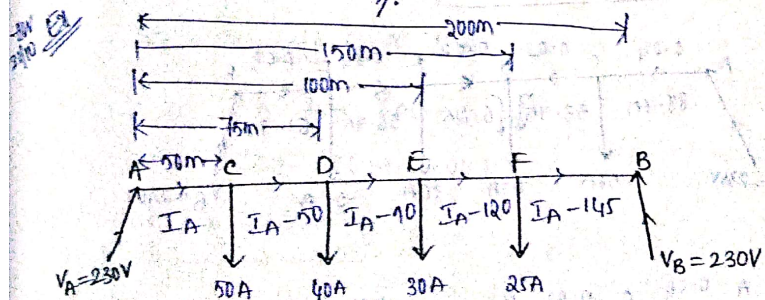 Ex
200m
150m
100m
75m
50m
A C D E F B
I_A I_A-50 I_A-90 I_A-120 I_A-145
V_A=230V V_B=230V
50A 40A 30A 25A